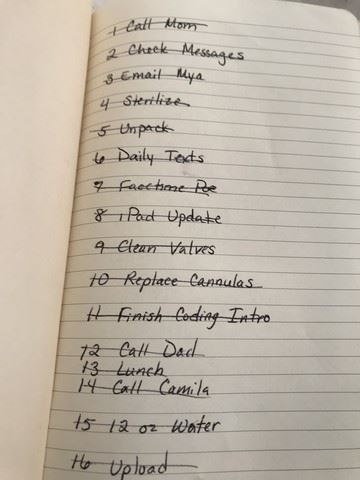 1 Call Mom
2 Check Messages
3 Email Mya
4 Sterilize
5 Unpack
6 Daily Texts
7 Facetime Poe
8 iPad Update
9 Clean Valves
10 Replace Cannulas
11 Finish Coding Intro
12 Call Dad
13 Lunch
14 Call Camila
15 12 oz Water
16 Upload